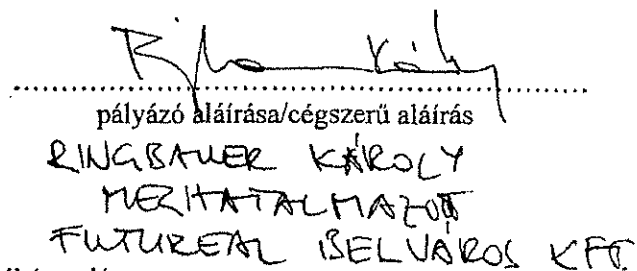 pályázó aláírása/cégszerű aláírás
RINGBAUER KÁROLY
MEGHATALMAZOTT
FUTUREAL BELVÁROS KFT.